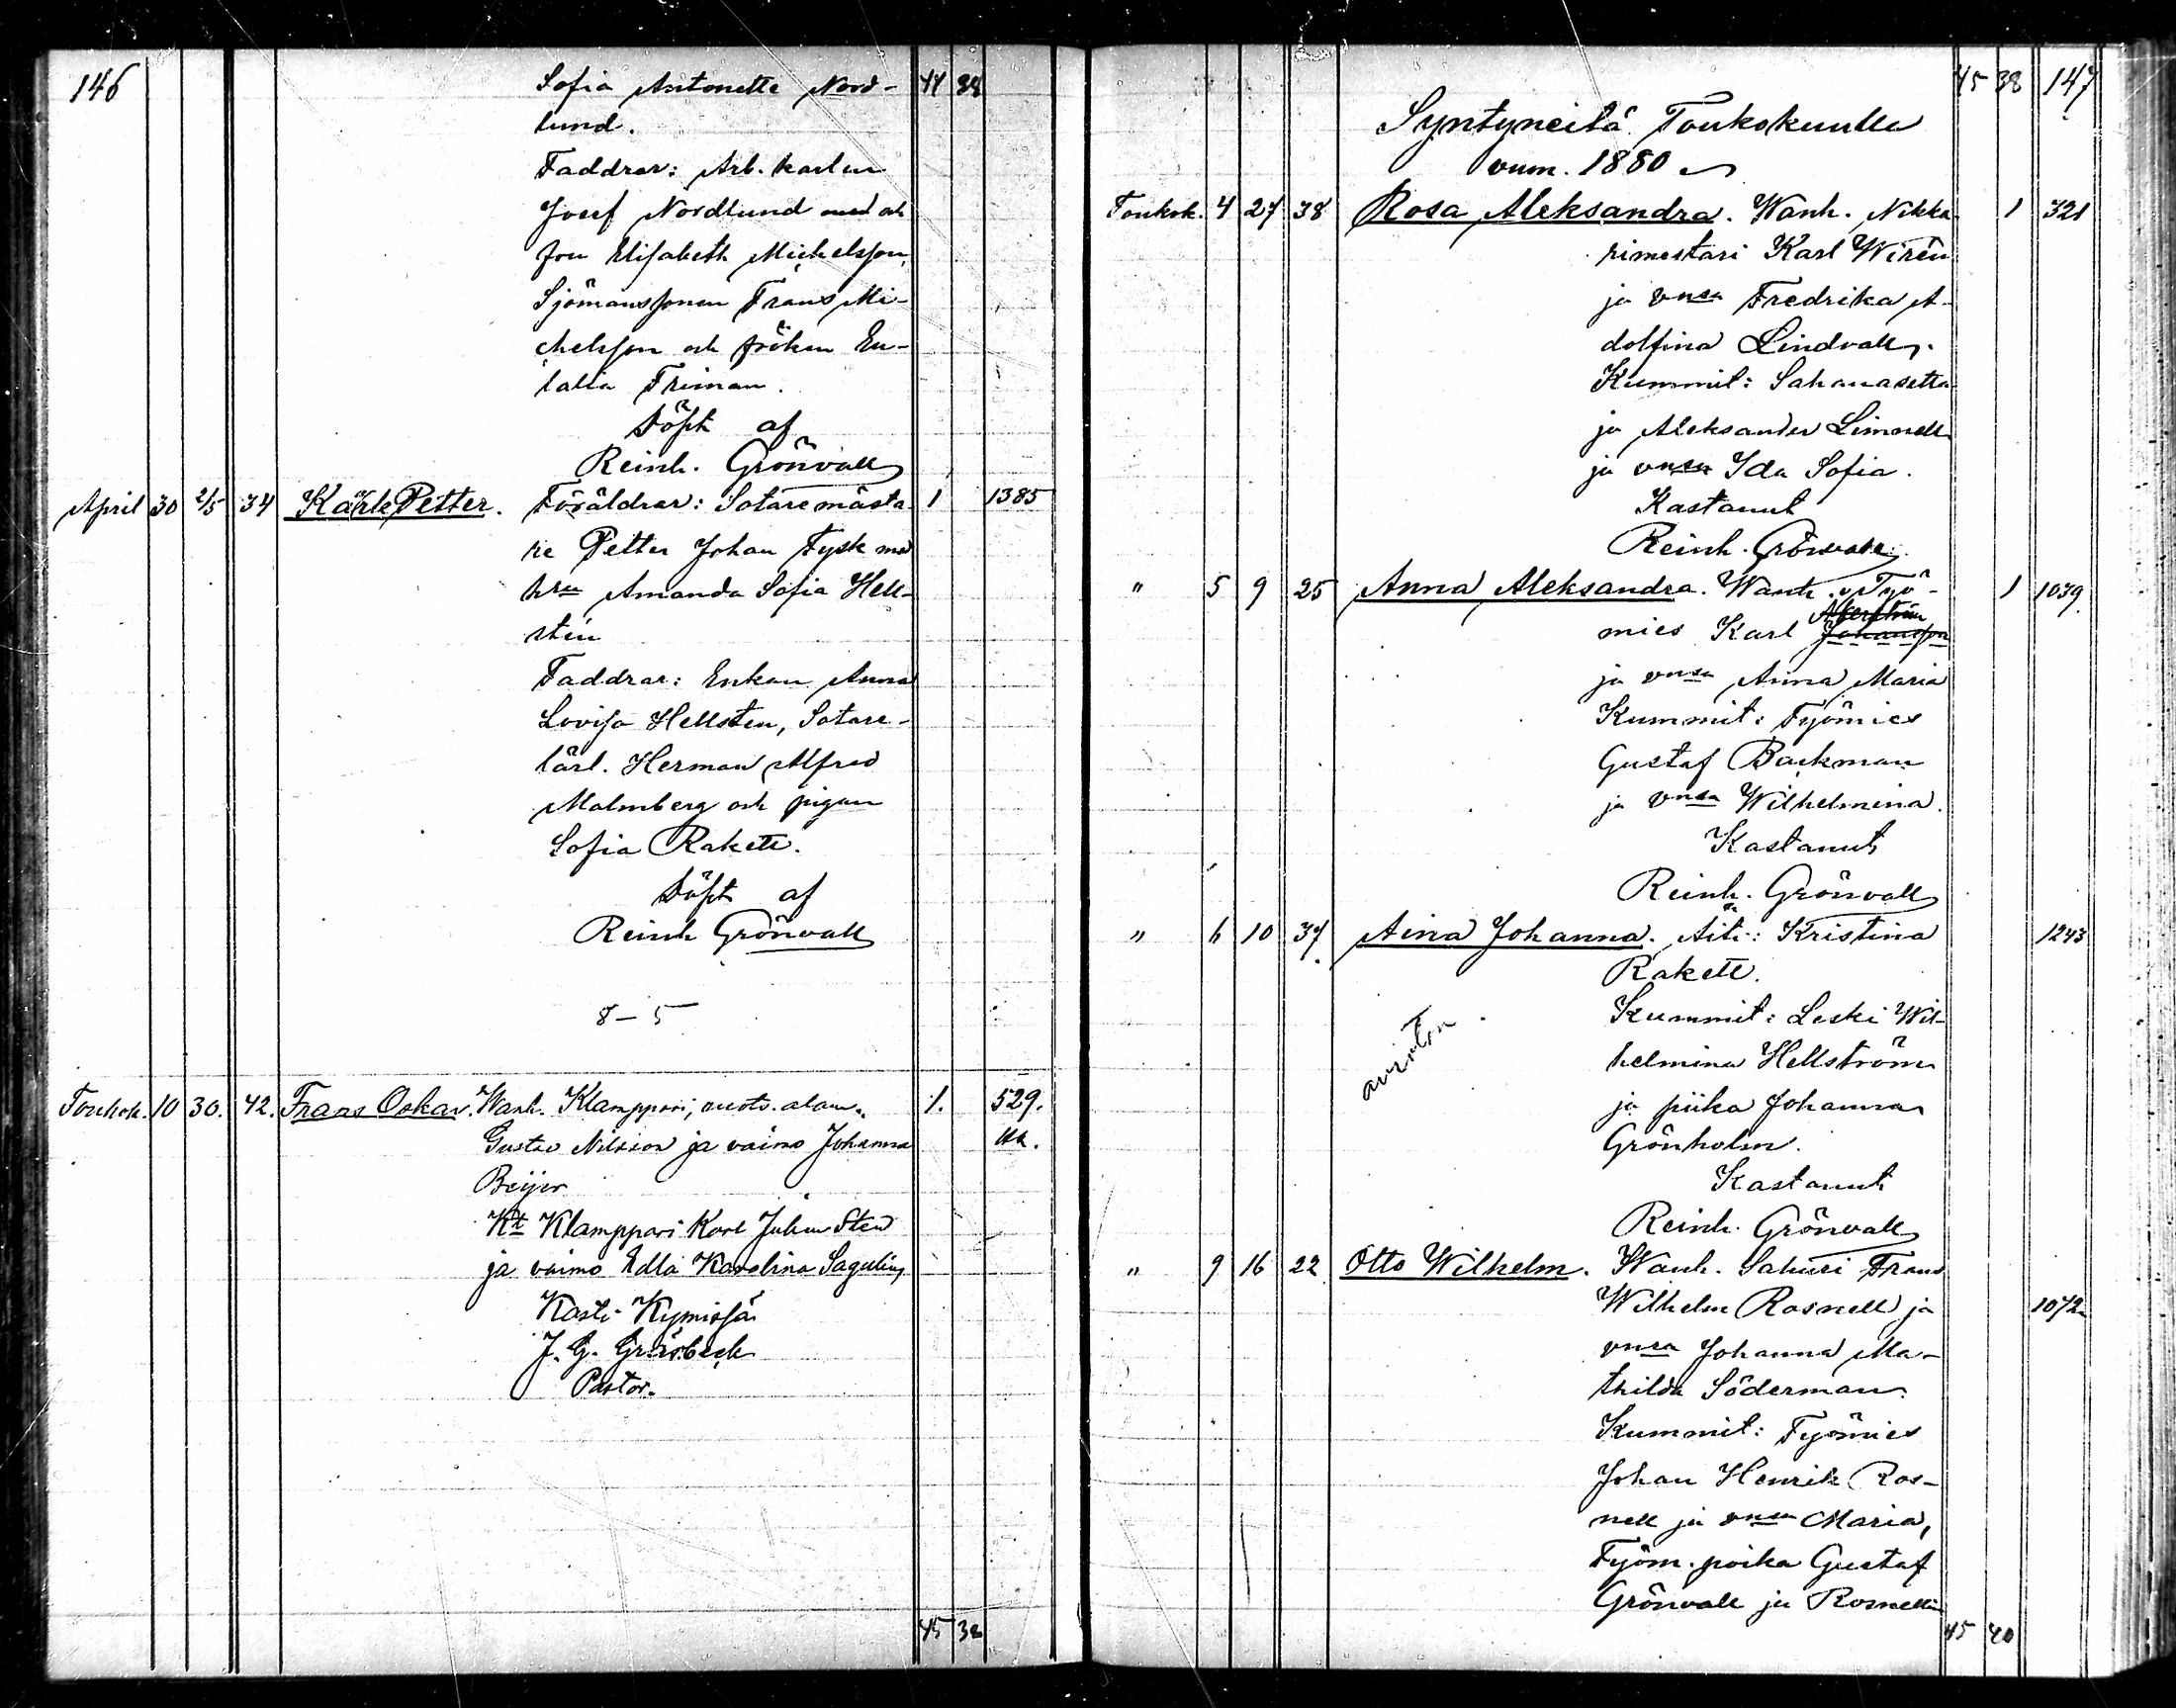 146
Sofia Antonette Nord- 44 38
lund.
Faddrar: Arb. karlen
Josef Nordlund med och
fru Elisabeth Michelsson,
Sjömanssonen Frans Mi-
chelsson och fröken Eu-
lalia Friman.
Döpt af
Reinh. Grönvall
April 30 2/5 34 Karl Petter. Föräldrar: Sotaremästa- 1 1385
re Petter Johan Tysk med
hru Amanda Sofia Hell-
stén
Faddrar: Enkan Anna
Lovisa Hellsten, Sotare-
lärl. Herman Alfred
Malmberg och pigan
Sofia Rakett.
Döpt af
Reinh Grönvall
8-5
Toukok. 10 30. 42. Frans Oskar. Wanh. Klamppari, ruots. alam. 1. 529.
Gustav Nilsson ja vaimo Johanna
Beijer
Kt Klamppari Karl Juhan Sten
ja vaimo Edla Karolina Sagulin,
Kasti Kymissä
J. G. Gräsbeck
Pastor.
45 38
45 38 147
Syntyneitä Toukokuulla
vuon. 1880
Toukok. 4 27 38 Rosa Aleksandra. Wanh. Nikka- 1 321
rimestari Karl Wirén
ja vmsa Fredrika A-
dolfina Lindvall.
Kummit: Sahanasetta-
ja Aleksander Limnell
ja vmsa Ida Sofia.
Kastanut
Reinh. Grönvall
" 5 9 25 Anna Aleksandra. Wanh. Työ- 1 1039
Åkerström
mies Karl Johansson
ja vmsa Anna Maria
Kummit: Työmies
Gustaf Backman
ja vmsa Wilhelmina.
Kastanut
Reinh. Grönvall
" 6 10 37 Aina Johanna. Äiti: Kristina 1243
Rakett.
Kummit: Leski Wil-
helmina Hellström
avioton
ja piika Johanna
Grönholm.
Kastanut
Reinh. Grönvall
" 9 16 22 Otto Wilhelm. Wanh. Sahuri Frans
Wilhelm Rosnell ja 1072
vmsa Johanna Ma-
thilda Söderman.
Kummit: Työmies
Johan Henrik Ros-
nell ja vmsa Maria,
Työm. poika Gustaf
Grönvall ja Rosnellin
45 40